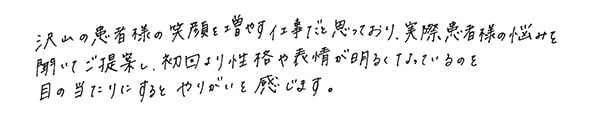 沢山の患者様の笑顔を増やす仕事だと思っており、実際、患者様の悩みを
聞いてご提案し、初回より性格や表情が明るくなっているのを
目の当たりにするとやりがいを感じます。